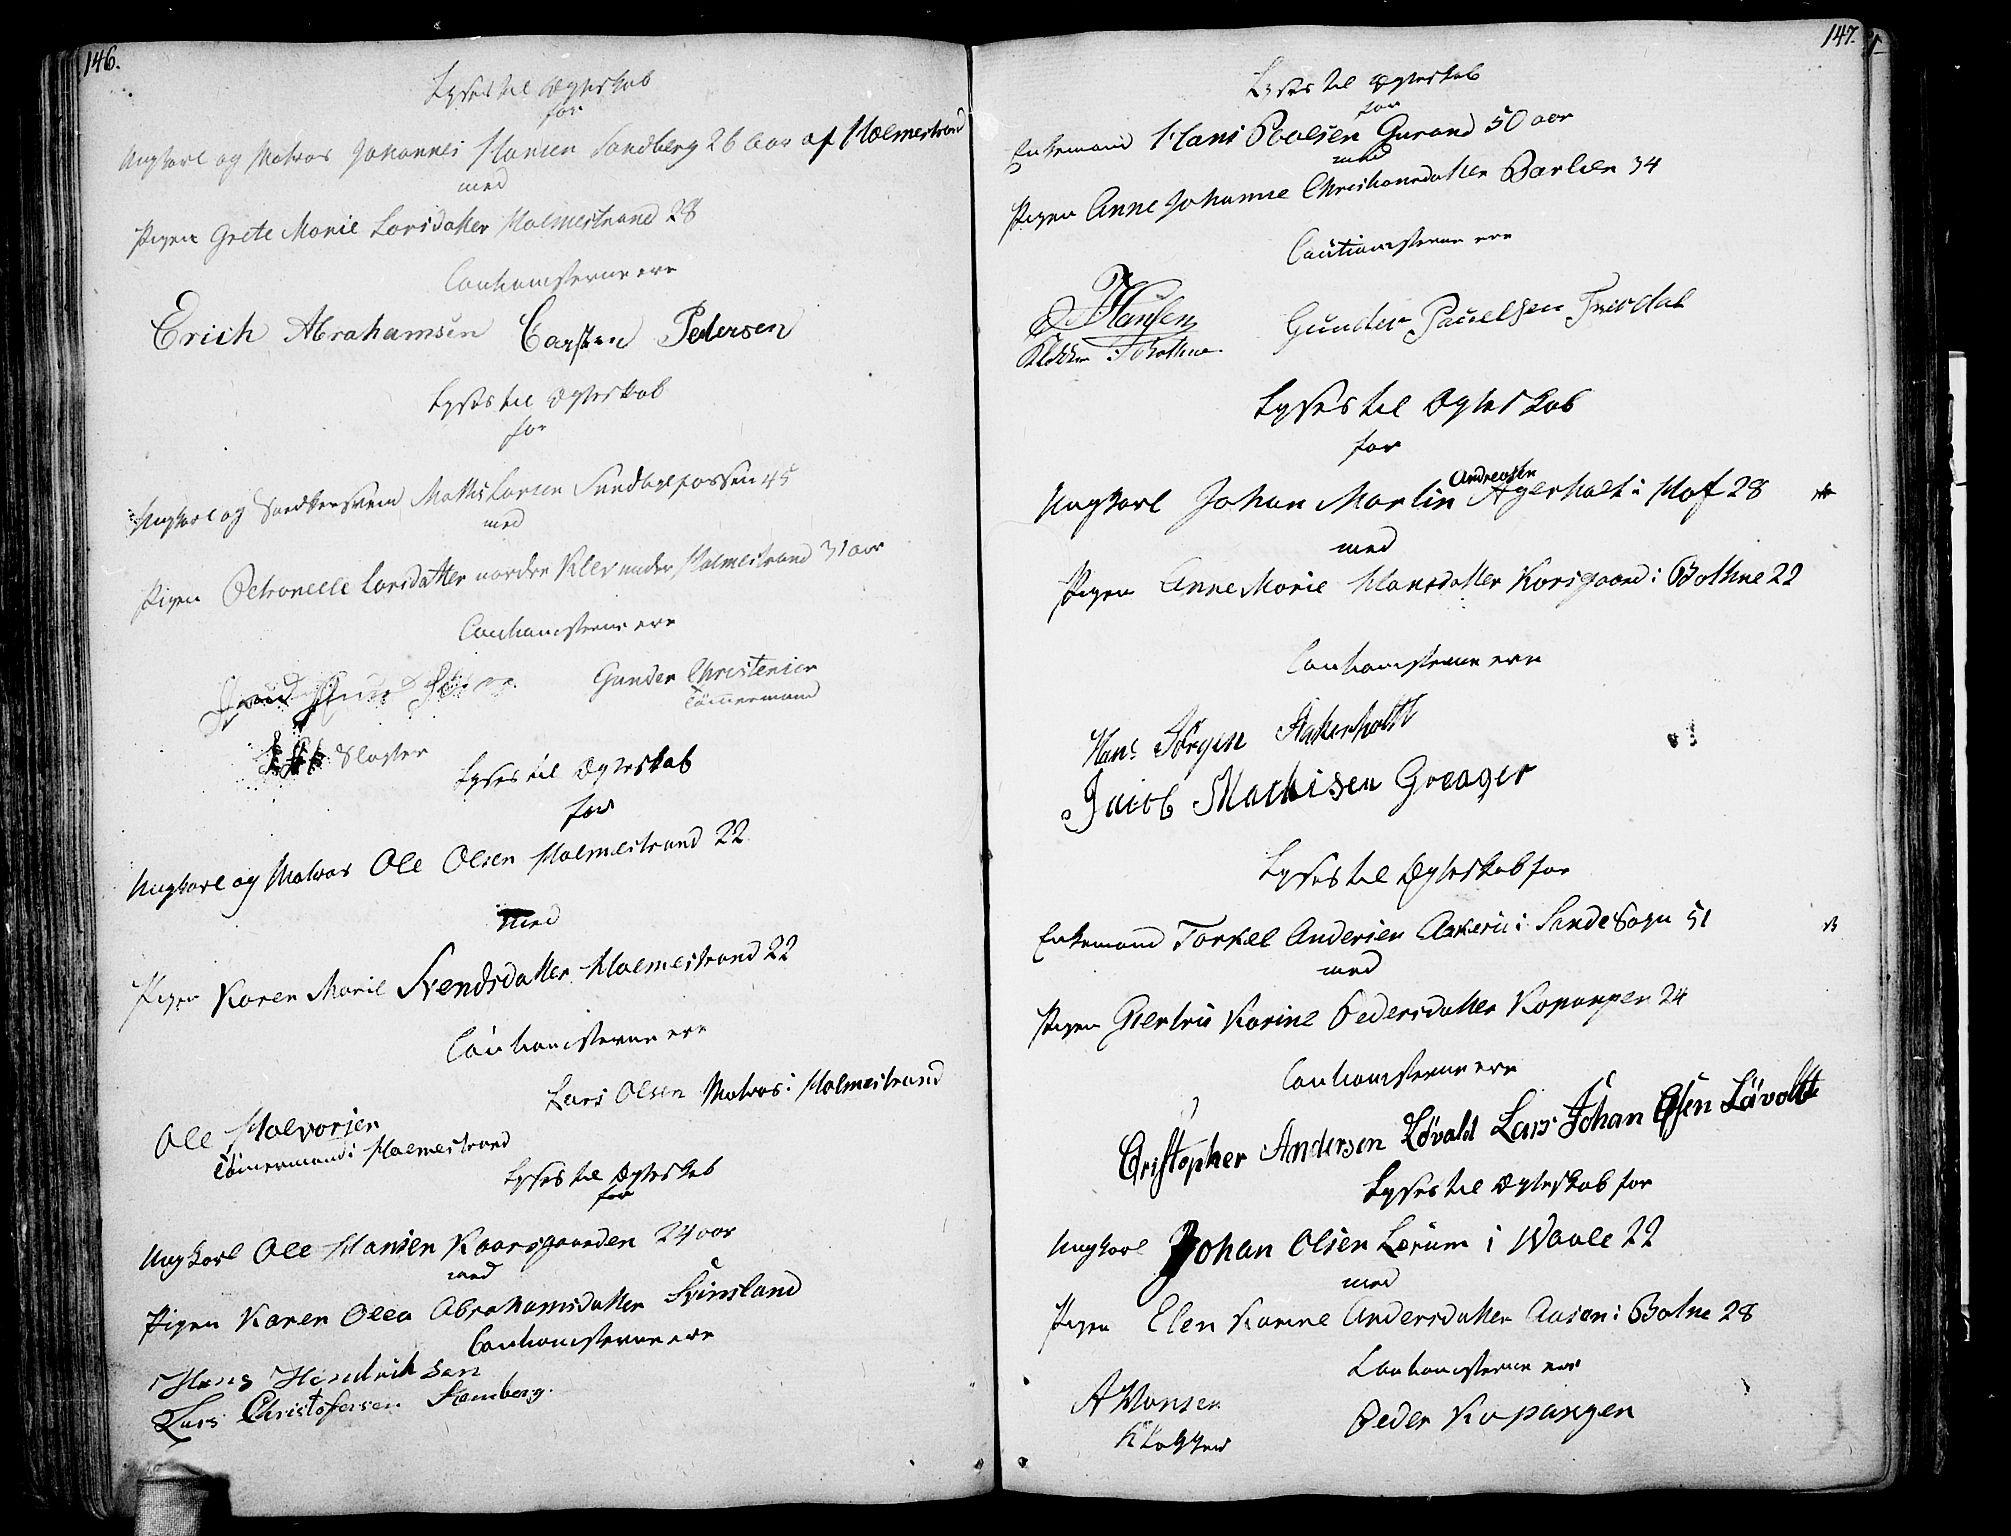 146.
Lyses til Ægteskab
for
Ungkarl og Matros Johannes Hansen Sandberg 26 Aar af Holmestrand
med
Pigen Grete Marie Larsdatter Holmestrand 28
Cautionisterne ere
Erich Abrahamsen Carsten Pedersen
Lyses til Ægteskab
for
Ungkarl og Snedkersvend Mathis Larsen Sundbyefossen 45
med
Pigen Petronelle Larsdatter nordre Klev under Holmestrand 31 aar
Cautionisterne ere
Gunder Christensen
Tømmermand
Slagter
Lyses til Ægteskab
for
Ungkarl og Matros Ole Olsen Holmestrand 22
med
Pigen Karen Marie Svendsdatter Holmestrand 22
Cautionisterne ere
Lars Olsen Matros i Holmestrand
Ole Halvorsen
Tømermand i Holmestrand
Lyses til Ægteskab
for
Ungkarl Ole Hansen Kaarsgaarden 24 aar
med
Pigen Karen Olea Abrahamsdatter Svinsland
Cautionisterne ere
Hans Hendrichsen
Lars Christofersen Hamberg.
147.
Lyses til Ægteskab
for
Enkemand Hans Povelsen Gurand 50 aar
med
Pigen Anne Johanne Christiansdatter Barlien 34
Cautionisterne ere
Hansen
Klokker i Bothne.
Gunder Pauelsen
Lyses til Ægteskab
for
Andreasen
Ungkarl Johan Martin Agerholt i Hof 28
med
Pigen Anne Marie Hansdatter Korsgaard i Bothne 22
Cautionisterne ere
Hans Jørgen Hakerholtt
Jacob Mathisen Greager
Lyses til Ægteskab for
Enkemand Torkel Andersen Askeru i Sande Sogn 51
med
Pigen Giertru Karine Pedersdatter Kopangen 24
Cautionisterne ere
Cristopher Andersen Løvald Lars Johan Olsen Løvoltt
Lyses til Ægteskab for
Ungkarl Johan Olsen Lerum i Waale 22
med
Pigen Elen Karine Andersdatter Aasen i Botne 28
Cautionisterne ere
A Hansen
Klokker
Peder Kopangen